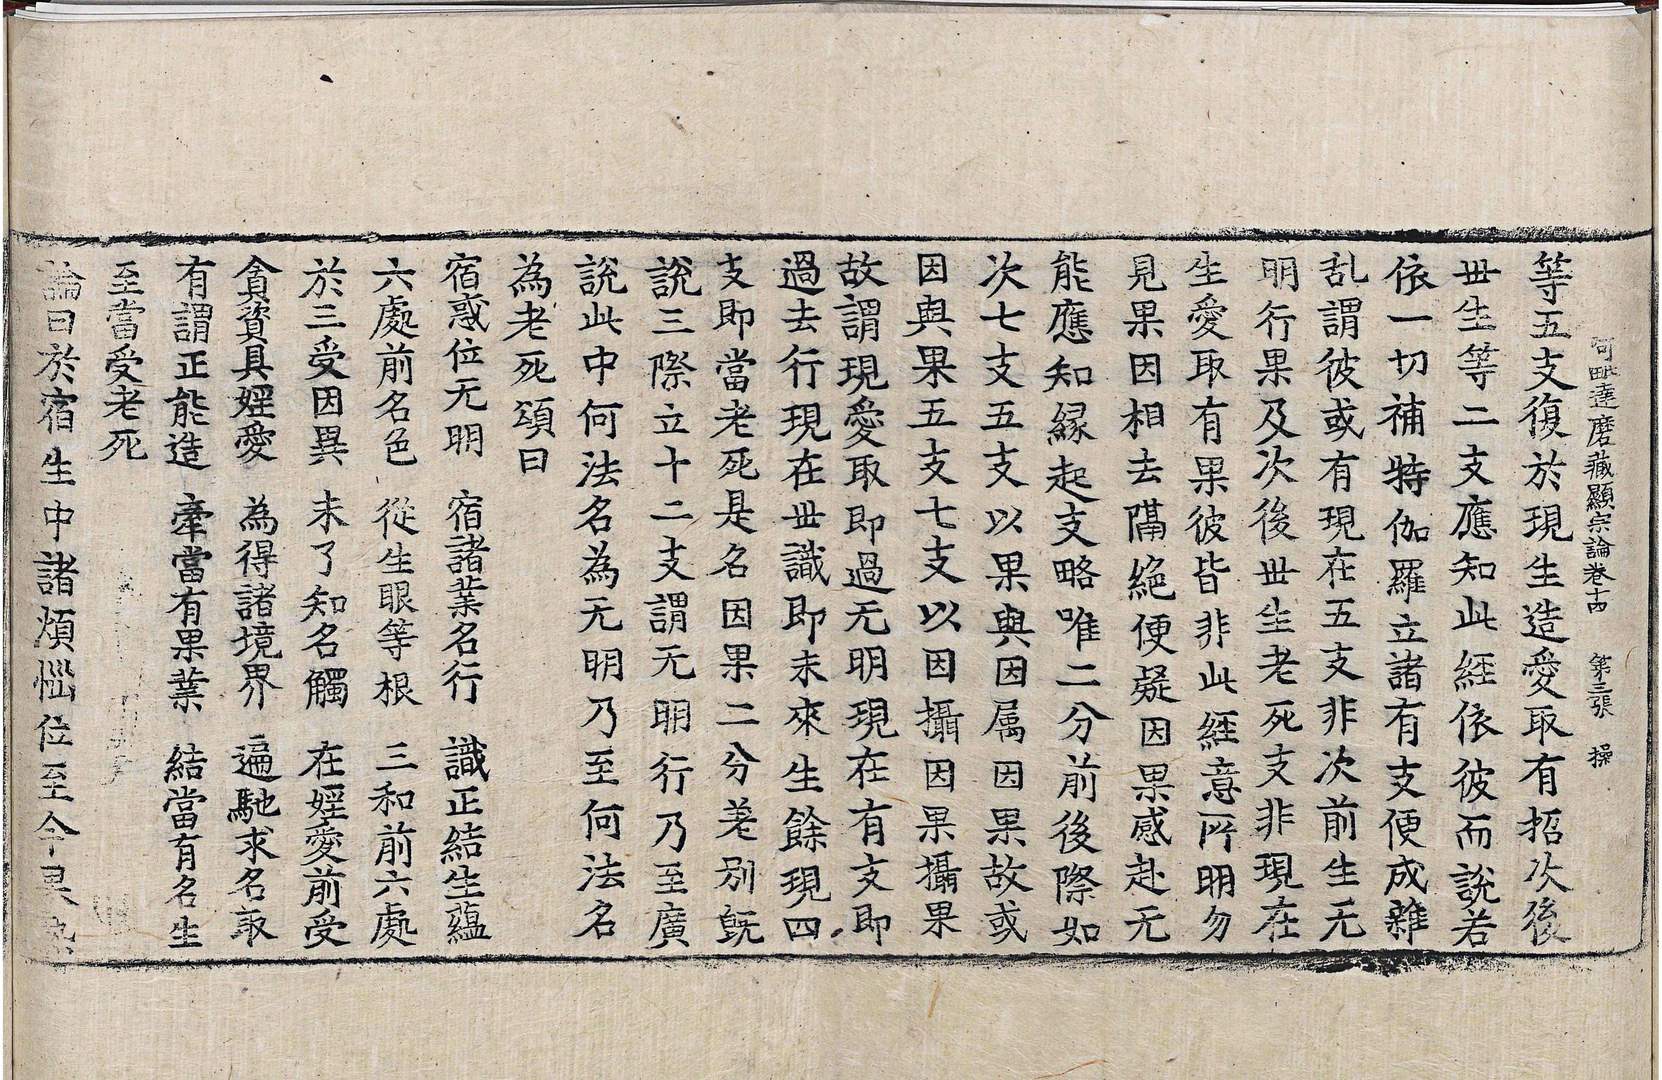 阿毗達磨藏顯宗論卷十四 第三張 操
等五支復於現生造愛取有招次後
丗生等二支應知此經依彼而說若
依一切補特伽羅立諸有支便成雜
乱謂彼或有現在五支非次前生无
明行果及次後丗生老死支非現在
生愛取有果彼皆非此經意所明勿
見果因相去隔絕便疑因果感赴无
能應知緣起支略唯二分前後際如
次七支五支以果與因属因果故或
因與果五支七支以因攝因果攝果
故謂現愛取即過无明現在有支即
過去行現在丗識即未來生餘現四
支即當老死是名因果二分差別旣
說三際立十二支謂无明行乃至廣
說此中何法名為无明乃至何法名
為老死頌曰
宿惑位无明 宿諸業名行 識正結生蘊
六處前名色 從生眼等根 三和前六處
於三受因異 未了知名觸 在婬愛前受
貪資具婬愛 為得諸境界 遍馳求名取
有謂正能造 牽當有果業 結當有名生
至當受老死
論曰於宿生中諸煩惱位至今果熟